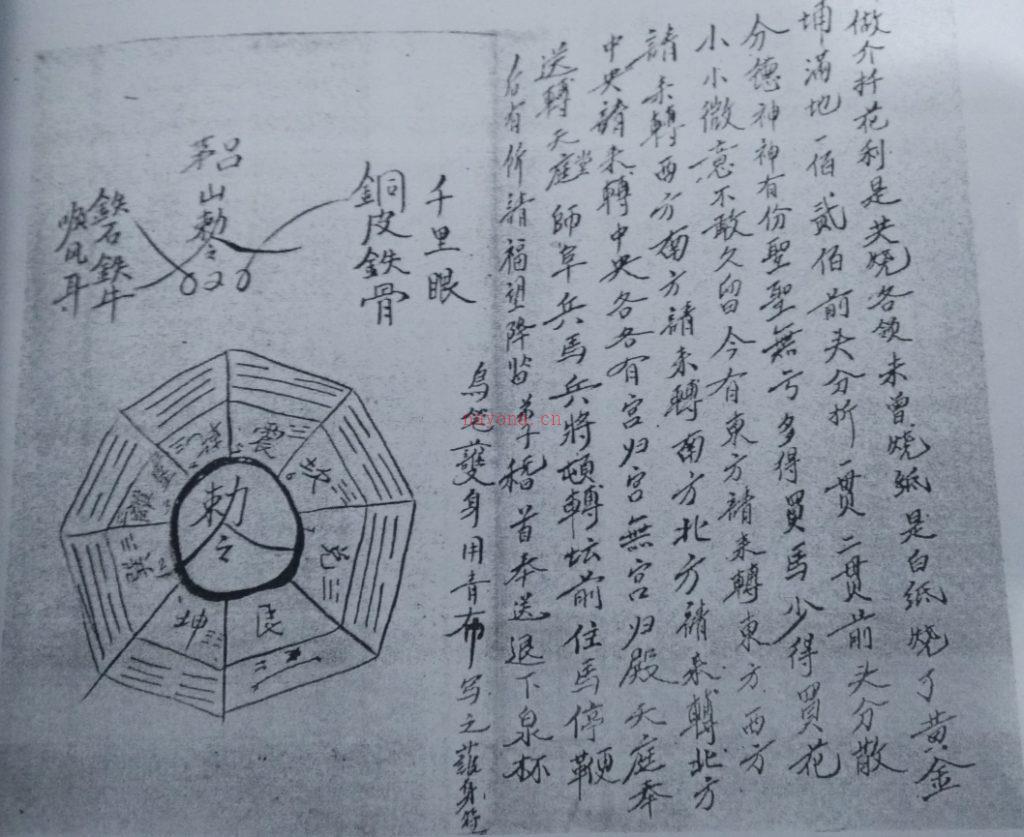 做介折花利是共燒各領未曾燒紙是白紙燒了黃金
埔滿地一佰貳佰前头分折一贯二贯前头分散
分德神神有份聖聖無亏多得買馬少得買花
小小微意不敢久留今有東方請来轉東方西方
請来轉西方南方請来轉南方北方請来轉北方
中央請来轉中央各各有宫归宫無宫归殿天庭奉
送轉天庭堂師阜兵馬兵將頓轉坛前住馬停鞭
后有所請福望降监弟子稽首奉送退下泉杯
烏 身用青布写之護身符
千里眼
銅皮鉄骨
吕
茅山勅令
鉄牛
順风耳
勅令
震
兌
艮
坤
nayona.cn